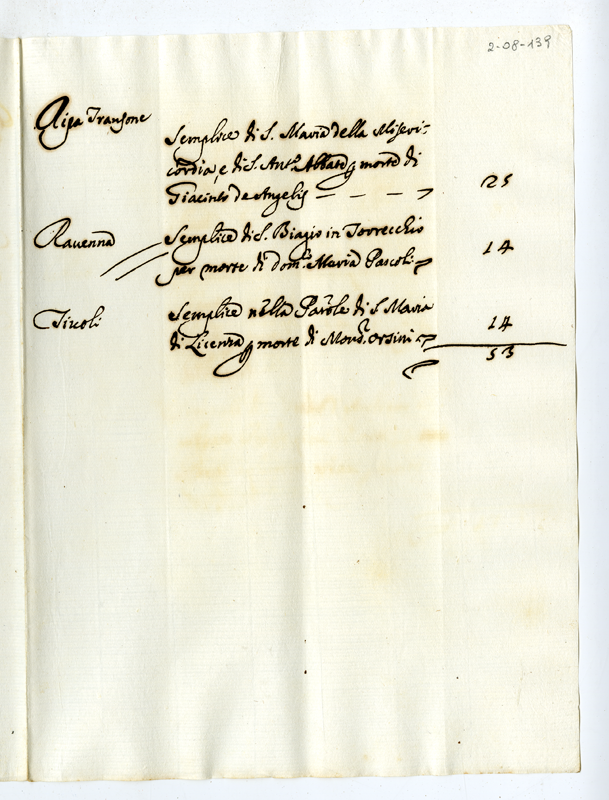 2-08-139
Ripa Transone
Semplice di S. Maria della Miseri-
cordia, e di S. Ant.o Abbate p morte di
Giacinto de Angelis — — — 25
Ravenna Semplice di S. Biagio in Torrecchio
per morte di dom.co Maria Pascoli 14
Tivoli Semplice nella Par.le di S. Maria
di Licenza p morte di Mons.r Orsini 14
53